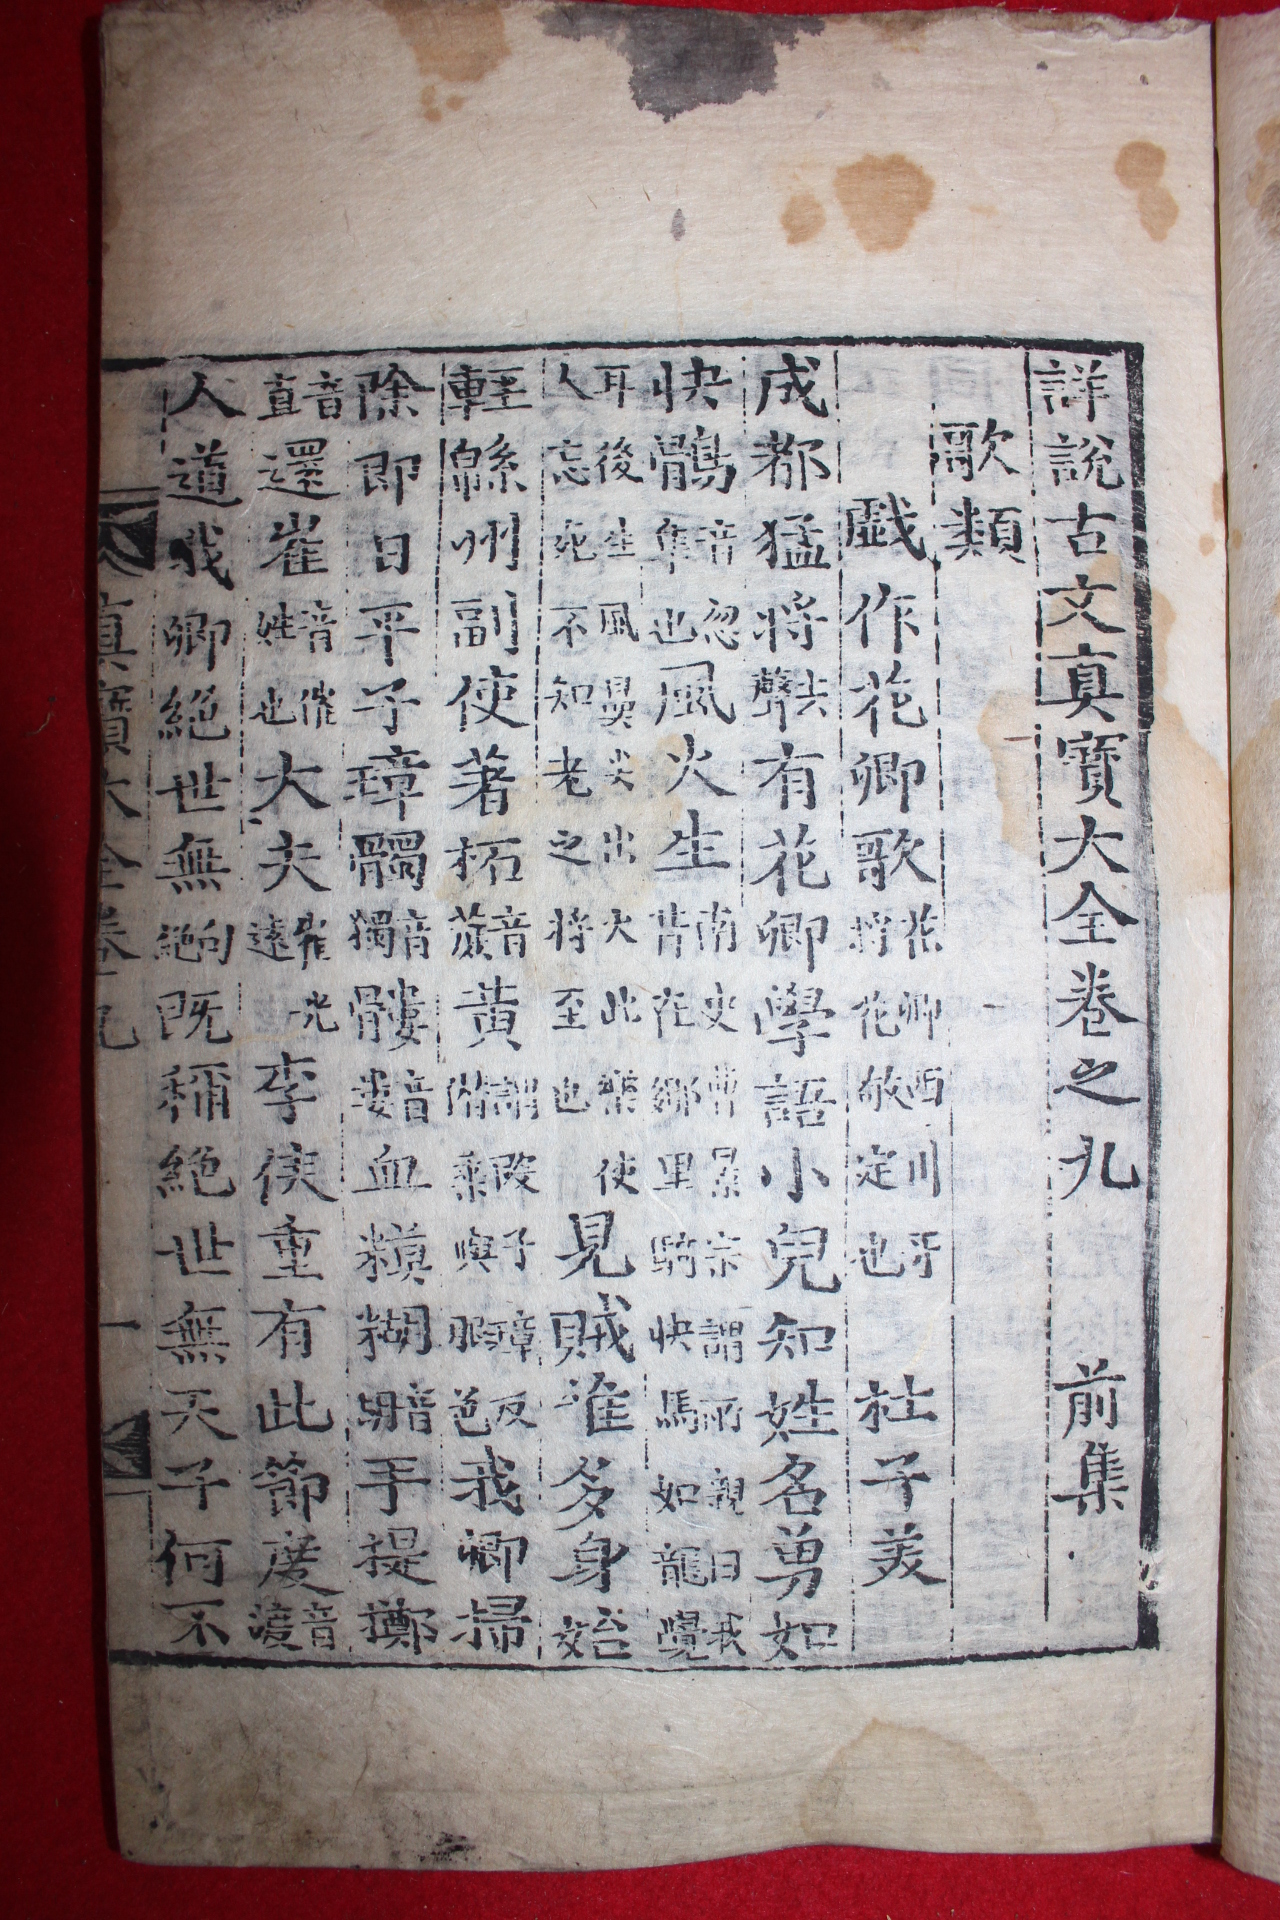 詳說古文真寶大全卷之九 前集
歌類
戲作花卿歌花卿西川牙將花敬定也 杜子美
成都猛將去聲有花卿學語小兒知姓名勇如
快鶻音忽隼也風火生南史曹景宗謂所親曰我昔在鄉里騎快馬如龍覺
耳後生風鼻尖出火此樂使人忘死不知老之將至也見賊惟多身始
輕綿州副使著柘音黃謂段子璋反僭乘輿服色我卿掃
除即日平子璋髑音獨髏音婁血糢糊音胡手提擲
音直還崔音催姓也大夫崔光遠李侯重有此節度音渡
人道我卿絕世無句絕既稱絕世無天子何不
真寶大全卷九 一